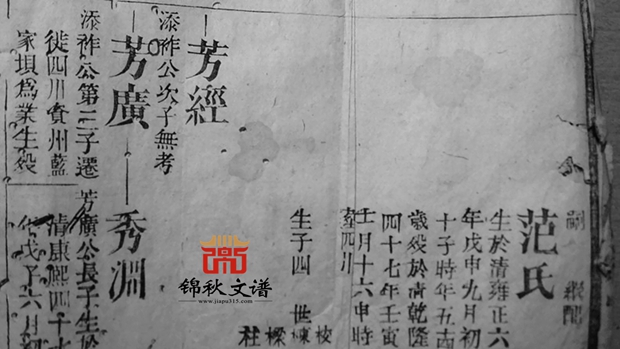 嗣 繼配
范氏
生於清雍正六
年戊申九月初
十子時年五十
歲歿於清乾隆
四十七年壬寅
月十六申時
四川
生子四 世
棟
樑
柱
芳經
添祚公次子無考
芳廣
添祚公第三子遷
徙四川貴州藍
家垻為業生歿
秀淵
芳廣公長子生於
清康熙四十
六月初
锦秋文谱
www.jiapu315.com